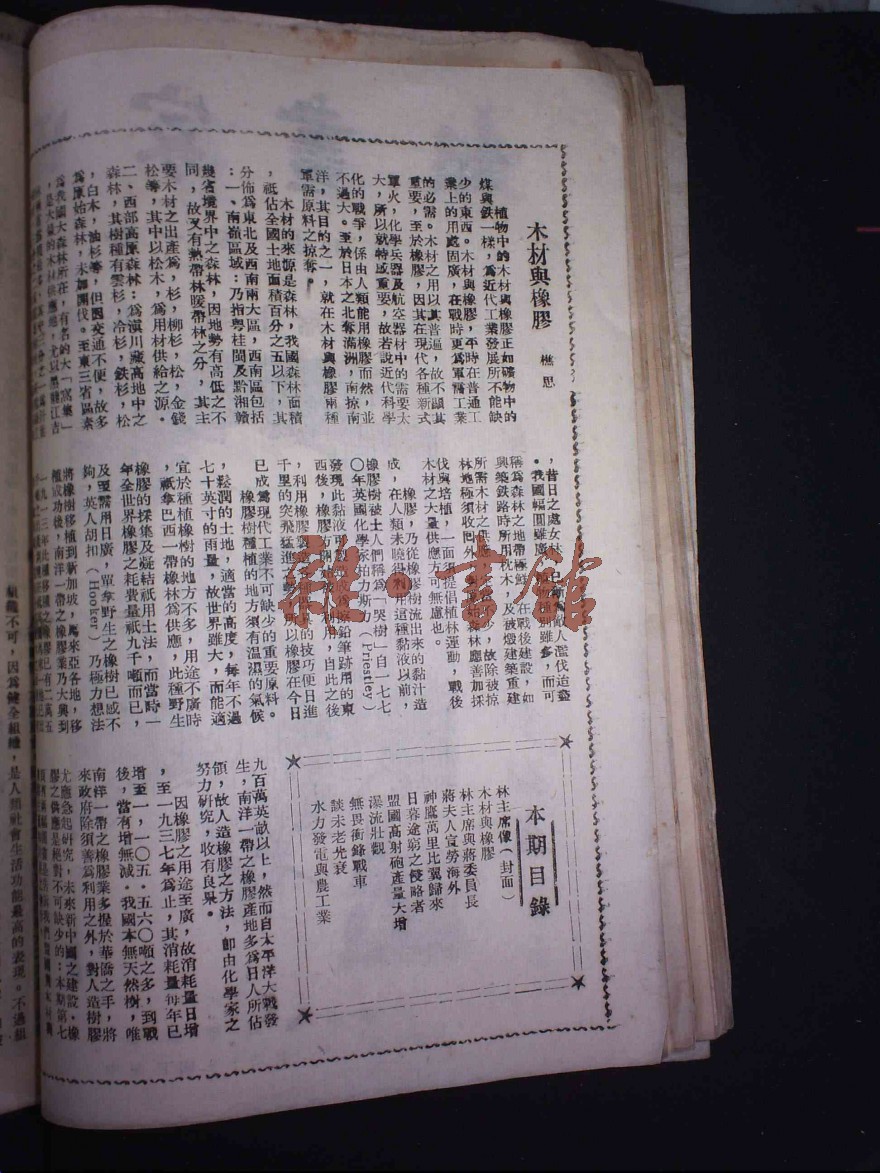 木材與橡膠
樵思
植物中的木材與橡膠正如礦物中的
煤與鐵一樣，爲近代工業發展所不能缺
少的東西。木材與橡膠，平時在普通工
業上的用處固廣，在戰時更爲軍需工業
的必需。木材之用以其普遍，故不顯其
重要，至於橡膠，因其在現代各種新式
軍火，化學兵器及航空器材中的需要太
大，所以就特感重要，故若說近代科學
化的戰爭，係由人類能用橡膠而然，並
不過大。至於日本之北奪滿洲，南掠南
洋，其目的之一，就在木材與橡膠兩種
軍需原料之掠奪。
木材的來源是森林，我國森林面積
，祗佔全國土地面積百分之五以下，其
分佈爲東北及西南兩大區，西南區包括
：一、南嶺區域：乃指粤桂閩及黔湘贛
幾省境界中之森林，因地勢有高低之不
同，故又有熱帶林暖帶林之分，其主
要木材之出產爲，杉，柳杉，松，金錢
松等，其中以松木，爲用材供給之源。
二、西部高原森林：爲滇川藏高地中之
森林，其樹種有雲杉，冷杉，鐵杉，松
，白木，油杉等，但因交通不便，故多
爲原始森林，未加開伐。至東三省區素
爲我國大森林所在，有名的大「窩集」
，是大量的木材供應地，尤以黑龍江吉
，昔日之處女林，已漸被敵人濫伐迨盡
。我國幅圓雖廣，植物種別雖多，而可
稱爲森林之地帶極鮮，在戰後建設，如
興築鐵路時所用枕木，及被燬建築重建
所需木材之供應，故除被掠
林地極須收回外，對森林應善加採
伐與培植，一面須提倡植林運動，戰後
木材之大量供應方可無慮也。
橡膠，乃從橡膠樹流出來的黏汁造
成，在人類未曉得利用這種黏液以前，
橡膠樹被土人們稱爲「哭樹」自一七七
〇年英國化學家柏力斯力（Priestley）
發現此黏液可製成鉛筆跡用的東
西後，橡膠方，自此之後
，利用橡膠製造的技巧便日進
千里的突飛猛進，所以橡膠在今日
已成爲現代工業不可缺少的重要原料。
橡膠樹種植的地方須有溫濕的氣候
，鬆潤的土地，適當的高度，每年不過
七十英寸的雨量，故世界雖大，而能適
宜於種植橡樹的地方不多，用途不廣時
，祗拿巴西一帶橡林爲供應，此種野生
橡膠的採集及凝結祇用土法，而當時一
年全世界橡膠之耗費量祇九千噸而已，
及至需用日廣，單拿野生之橡樹已感不
夠，英人胡扣（Hooker）乃極力想法
將橡樹移植到新加坡，馬來亞各地，移
種成功後，南洋一帶之橡膠業乃大興到
本期目錄
林主席像（封面）
木材與橡膠
林主席與蔣委員長
蔣夫人宣勞海外
神鷹萬里比翼歸來
日暮途窮之侵略者
盟國高射砲產量大增
瀑流壯觀
無畏衝鋒戰車
談未老光衰
水力發電與農工業
九百萬英畝以上，然而自太平洋大戰發
生，南洋一帶之橡膠產地多爲日人所佔
領，故人造橡膠之方法，卽由化學家之
努力研究，收有良果。
因橡膠之用途至廣，故消耗量日增
，至一九三七年爲止，其消耗量每年已
增至一，一〇五．五六〇噸之多，到戰
後，當有增無減。我國本無天然樹，唯
南洋一帶之橡膠業多握於華僑之手，將
來政府除須善爲利用之外，對人造樹膠
尤應急起研究，未來新中國之建設，橡
膠之供應是絕對不可缺少的；本期第七
組織不可，因爲健全組織，是人類社會生活功能最高的表現。不過組
雜·書館